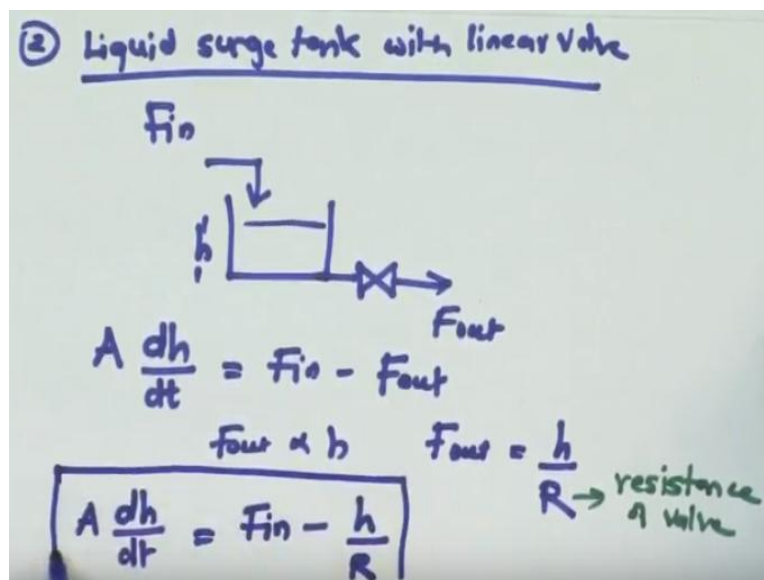 ② Liquid surge tank with linear valve
Fin
h
Fout
A dh/dt = Fin - Fout
Fout ∝ h Fout = h/R → resistance of valve
A dh/dt = Fin - h/R